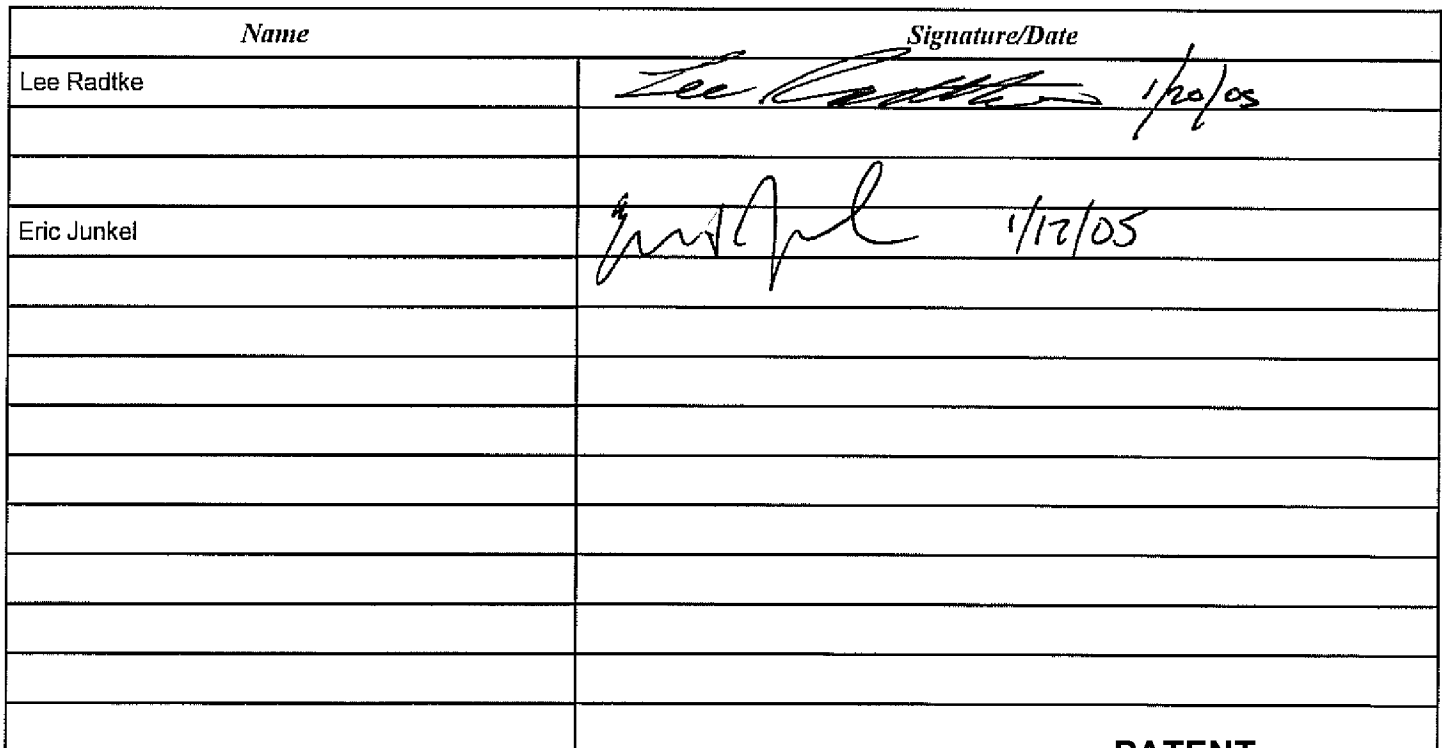 Name Signature/Date
Lee Radtke Lee Radtke 1/20/05
Eric Junkel 1/12/05
PATENT